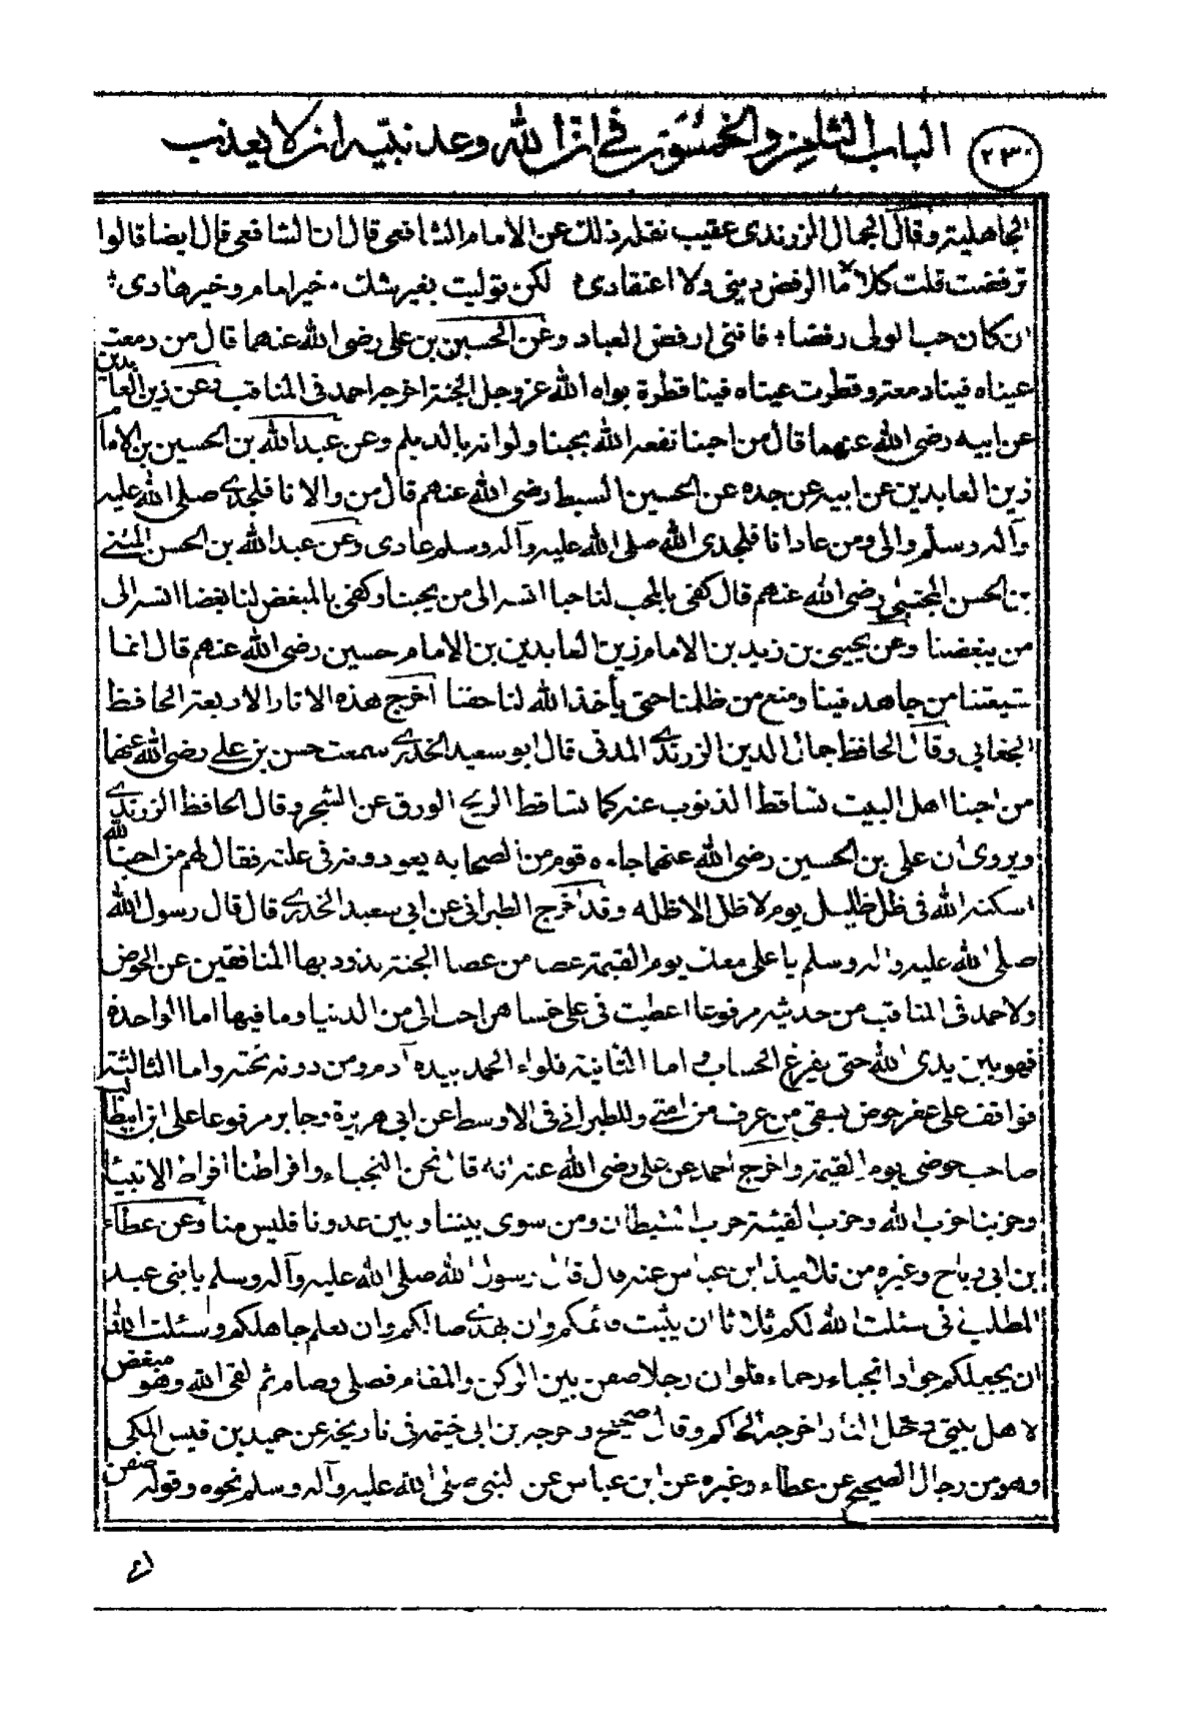 ٢٣٠ الباب الثامن والخمسون في ان الله وعد نبيه ان لا يعذب
الجاهلية وقال الجمال الزرندى عقيب نقله ذلك عن الامام الشافعى قال ان الشافعى قال ايضا قالوا
ترفضت قلت كلا ما الرفض دينى ولا اعتقادى لكن توليت بغير شك خير امام وخير هادى
ان كان حب الولى رفضا فاننى ارفض العباد وعن الحسين بن على رضى الله عنهما قال من دمعت
عيناه فينا دمعة وقطرت عيناه فينا قطرة بواه الله عز وجل الجنة اخرجه احمد فى المناقب وعن زين العابدين
عن ابيه رضى الله عنهما قال من احبنا نفعه الله بحبنا ولو انه بالديلم وعن عبد الله بن الحسين بن الامام
زين العابدين عن ابيه عن جده عن الحسين السبط رضى الله عنهم قال من والانا فلجدى صلى الله عليه
وآله وسلم والى ومن عادانا فلجدى الله صلى الله عليه وآله وسلم عادى وعن عبد الله بن الحسن المثنى
بن الحسن المجتبى رضى الله عنهم قال كفى بالمحب لنا حبا انسه الى من يحبنا وكفى بالمبغض لنا بغضا انسه الى
من يبغضنا وعن يحيى بن زيد بن الامام زين العابدين بن الامام حسين رضى الله عنهم قال انما
شيعتنا من جاهد فينا ومنع من ظلمنا حتى يأخذ الله لنا حقنا اخرج هذه الاثار الاربعة الحافظ
الجعابي وقال الحافظ جمال الدين الزرندى المدنى قال ابو سعيد الخدرى سمعت حسن بن على رضى الله عنهما
من احبنا اهل البيت تساقط الذنوب عنه كما تساقط الريح الورق عن الشجر وقال الحافظ الزرندى
ويروى ان على بن الحسين رضى الله عنهما جاءه قوم من الصحابه يعودونه فى علته فقال لهم من احبنا لله
اسكنه الله فى ظل ظليل يوم لا ظل الا ظله وقد اخرج الطبرانى عن ابى سعيد الخدرى قال قال رسول الله
صلى الله عليه واله وسلم يا على معك يوم القيمة عصا من عصا الجنة تذود بها المنافقين عن الحوض
ولاحمد فى المناقب من حديثه مرفوعا اعطيت فى على خمسا هن احب الى من الدنيا وما فيها اما الواحدة
فهو بين يدى الله حتى يفرغ الحساب و اما الثانية فلواء الحمد بيده آدم ومن دونه تحته واما الثالثة
فواقف على عقر حوض يسقى من عرف من امتى وللطبرانى فى الاوسط عن ابى هريرة وجابر مرفوعا على ابن ابيطالب
صاحب حوضى يوم القيمة واخرج احمد عن على رضى الله عنه انه قال نحن النجباء وافراطنا افراط الانبياء
وحزبنا حزب الله وحزب الفئة حزب الشيطان ومن سوى بيننا وبين عدونا فليس منا وعن عطاء
بن ابى رباح وغيره من تلاميذ ابن عباس عنه قال قال رسول الله صلى الله عليه وآله وسلم يا بنى عبد
المطلب انى سئلت الله لكم ثلاثا ان يثبت قائمكم وان يهدى ضالكم وان يعلم جاهلكم وسئلت الله
ان يجعلكم جوادا نجباء رحماء فلو ان رجلا صفن بين الركن والمقام فصلى وصام ثم لقى الله وهو مبغض
لاهل بيتى دخل النار اخرجه الحاكم وقال صحيح وخرجه بن ابى خيثمة فى تاريخه عن حميد بن قيس المكى
وهو من رجال الصحيح عن عطاء وغيره عن ابن عباس عن النبى صلى الله عليه وآله وسلم نحوه وقوله صفن
اى